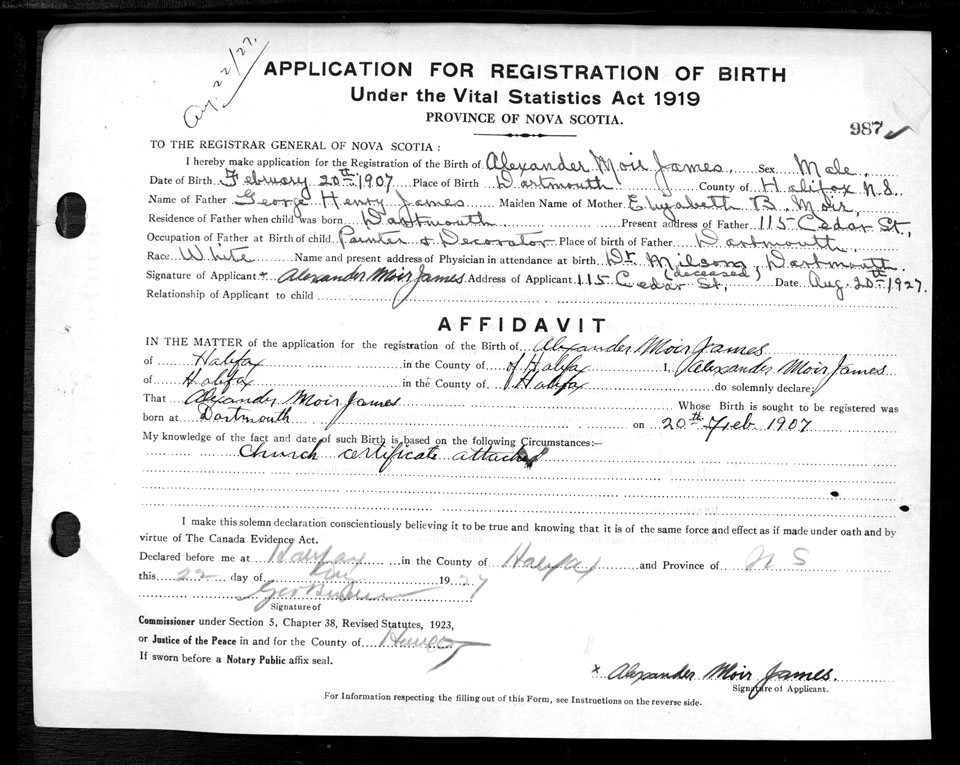 Aug. 22/27.
APPLICATION FOR REGISTRATION OF BIRTH
Under the Vital Statistics Act 1919
PROVINCE OF NOVA SCOTIA.
987
TO THE REGISTRAR GENERAL OF NOVA SCOTIA:
I hereby make application for the Registration of the Birth of Alexander Moir James. Sex Male.
Date of Birth February 20th 1907 Place of Birth Dartmouth County of Halifax N.S.
Name of Father George Henry James Maiden Name of Mother Elizabeth B. Moir,
Residence of Father when child was born Dartmouth Present address of Father 115 Cedar St,
Occupation of Father at Birth of child Painter & Decorator Place of birth of Father Dartmouth.
Race White Name and present address of Physician in attendance at birth Dr Milsom, Dartmouth.
(deceased)
Signature of Applicant * Alexander Moir James Address of Applicant 115 Cedar St, Date Aug. 20th 1927.
Relationship of Applicant to child
AFFIDAVIT
IN THE MATTER of the application for the registration of the Birth of Alexander Moir James
of Halifax in the County of of Halifax I, Alexander Moir James
of Halifax in the County of Halifax do solemnly declare;
That Alexander Moir James Whose Birth is sought to be registered was
born at Dartmouth on 20th Feb. 1907
My knowledge of the fact and date of such Birth is based on the following Circumstances:—
Church certificate attached
I make this solemn declaration conscientiously believing it to be true and knowing that it is of the same force and effect as if made under oath and by
virtue of The Canada Evidence Act.
Declared before me at Halifax in the County of Halifax and Province of N S
this 22 day of 1927
Signature of
Commissioner under Section 5, Chapter 38, Revised Statutes, 1923,
or Justice of the Peace in and for the County of
If sworn before a Notary Public affix seal.
x Alexander Moir James.
Signature of Applicant.
For Information respecting the filling out of this Form, see Instructions on the reverse side.